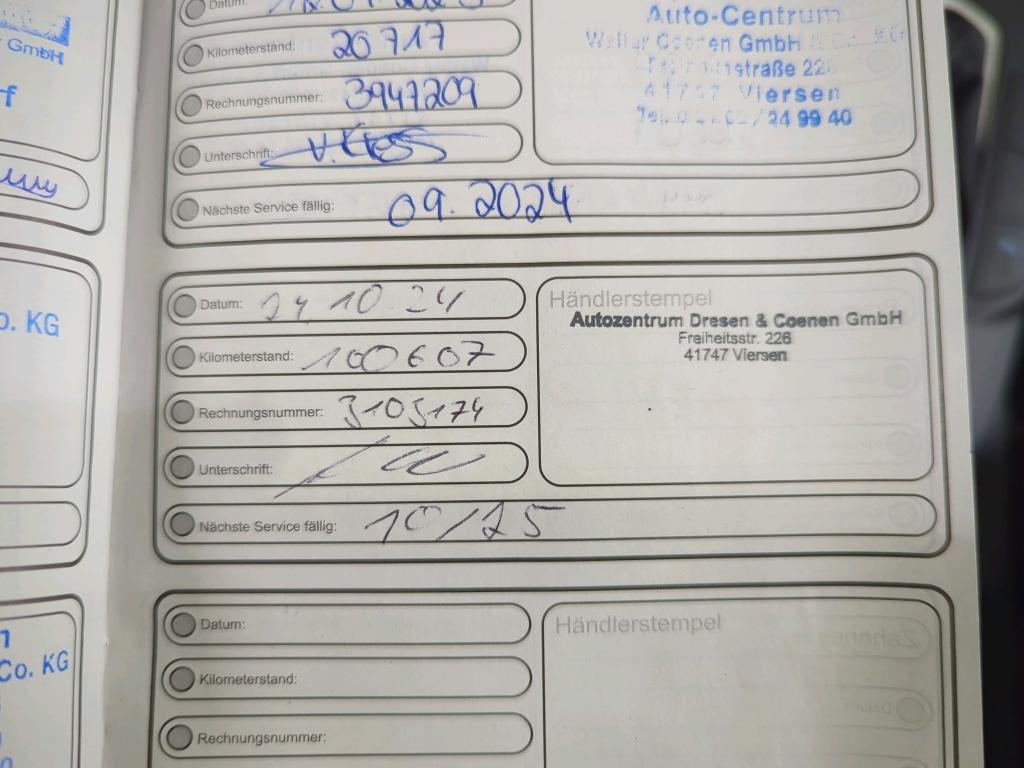 GmbH
Datum:
Kilometerstand: 20717
Rechnungsnummer: 3947209
Unterschrift:
Nächste Service fällig: 09.2024
Auto-Centrum
Coenen GmbH & Co. KG
Viersen
24 99 40
o. KG
Datum: 24 10.24
Kilometerstand: 100607
Rechnungsnummer: 3103174
Unterschrift:
Nächste Service fällig: 10/25
Händlerstempel
Autozentrum Dresen & Coenen GmbH
Freiheitsstr. 226
41747 Viersen
Co. KG
Datum:
Kilometerstand:
Rechnungsnummer:
Händlerstempel